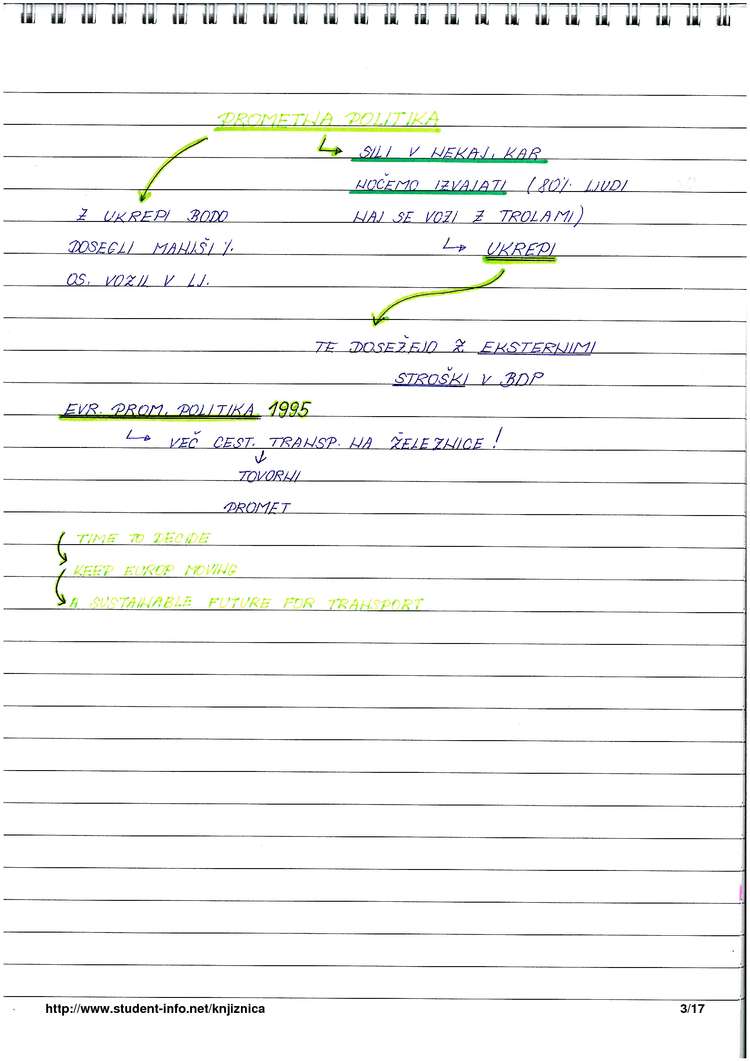 PROMETNA POLITIKA
SILI V NEKAJ, KAR
NOČEMO IZVAJATI (80% LJUDI
NAJ SE VOZI Z TROLAMI)
UKREPI
Z UKREPI BODO
DOSEGLI MANJŠI %
OS. VOZIL V LJ.
TE DOSEŽEJO Z EKSTERNIMI
STROŠKI V BDP
EVR. PROM. POLITIKA 1995
VEČ CEST. TRANSP. NA ŽELEZNICE!
TOVORNI
PROMET
TIME TO DECIDE
KEEP EUROP MOVING
A SUSTAINABLE FUTURE FOR TRANSPORT
http://www.student-info.net/knjiznica
3/17